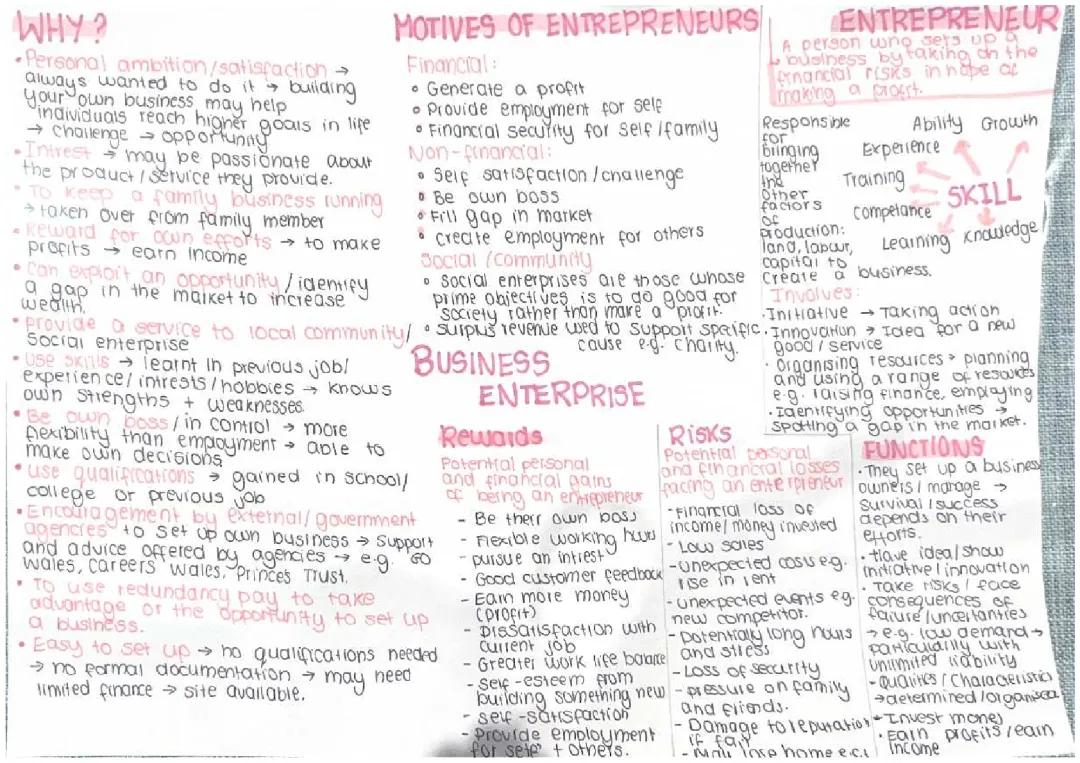 WHY?
• Personal ambition/satisfaction →
always wanted to do it → building
your own business may help
individuals reach higher goals in life
→ challenge → opportunity
• Intrest → may be passionate about
the product/service they provide.
• To keep a family business running
→ taken over from family member
• Reward for own efforts → to make
profits → earn income
• Can exploit an opportunity/identify
a gap in the market to increase
wealth.
• Provide a service to local community/
social enterprise
• Use skills → learnt in previous job/
experience/intrests/hobbies → knows
own strengths + weaknesses.
• Be own boss/in control → more
flexibility than employment → able to
make own decisions
• use qualifications → gained in school/
college or previous job
• Encouragement by external/government
agencies to set up own business → support
and advice offered by agencies → e.g. GO
Wales, Careers Wales, Princes Trust.
• To use redundancy pay to take
advantage of the opportunity to set up
a business.
• Easy to set up → no qualifications needed
→ no formal documentation → may need
limited finance → site available.
MOTIVES OF ENTREPRENEURS
Financial:
• Generate a profit
• Provide employment for self
• Financial security for self/family
Non-financial:
• Self satisfaction/challenge
• Be own boss
• Fill gap in market
• Create employment for others
Social/community
• Social enterprises are those whose
prime objectives is to do good for
society rather than make a profit.
• Surplus revenue used to support specific
cause e.g. charity.
BUSINESS
ENTERPRISE
Rewards
Potential personal
and financial gains
of being an entrepreneur
- Be their own boss
- Flexible working hours
- pursue an intrest
- Good customer feedback
- Earn more money
(profit)
- Dissatisfaction with
current job
- Greater work life balance
- Self-esteem from
building something new
- self-satisfaction
- Provide employment
for self + others.
Risks
Potential personal
and financial losses
facing an entrepreneur
- Financial loss of
income/money invested
- Low sales
- unexpected costs e.g.
rise in rent
- unexpected events eg.
new competitor.
- potentially long hours
and stress
- Loss of security
- pressure on family
and friends.
- Damage to reputation
if fail
- May lose home e.c.t
ENTREPRENEUR
A person who sets up a
business by taking on the
financial risks in hope of
making a profit.
Responsible
for
bringing
together
the
other
factors
of
production:
land, labour,
capital to
create a business.
Ability Growth
Experience
Training
SKILL
Competance
Learning Knowledge
Involves:
• Initiative → Taking action
• Innovation → Idea for a new
good/service
• Organising resources → planning
and using a range of resources
e.g. raising finance, employing
• Identifying opportunities →
spotting a gap in the market.
FUNCTIONS
• They set up a business
owners/manage →
survival/success
depends on their
efforts.
• Have idea/show
initiative/innovation
• Take risks/face
consequences of
failure/uncertainties
→ e.g. low demand →
particularly with
unlimited liability
• Qualities/characteristics
→ determined/organised
• Invest money
• Earn profits/earn
income